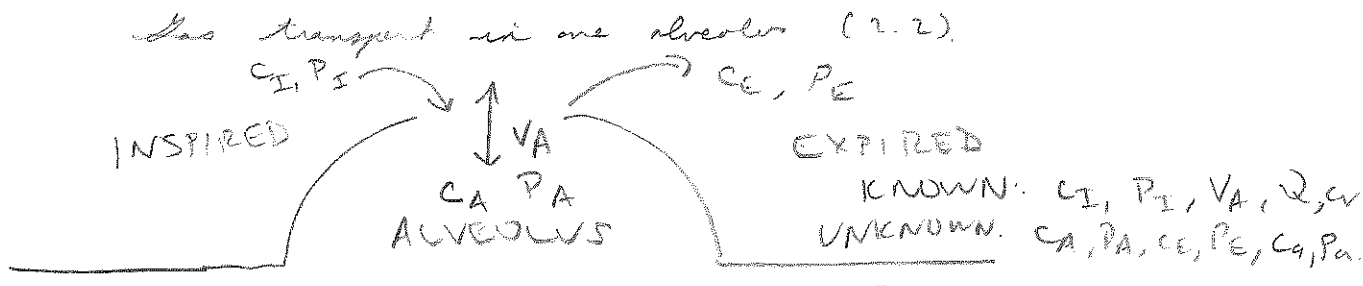 Gas transport in one alveolus (2.2).
C_I, P_I
C_E, P_E
INSPIRED
V_A
EXPIRED
C_A P_A
KNOWN: C_I, P_I, V_A, Q, c_v
ALVEOLUS
UNKNOWN: C_A, P_A, C_E, P_E, C_a, P_a.